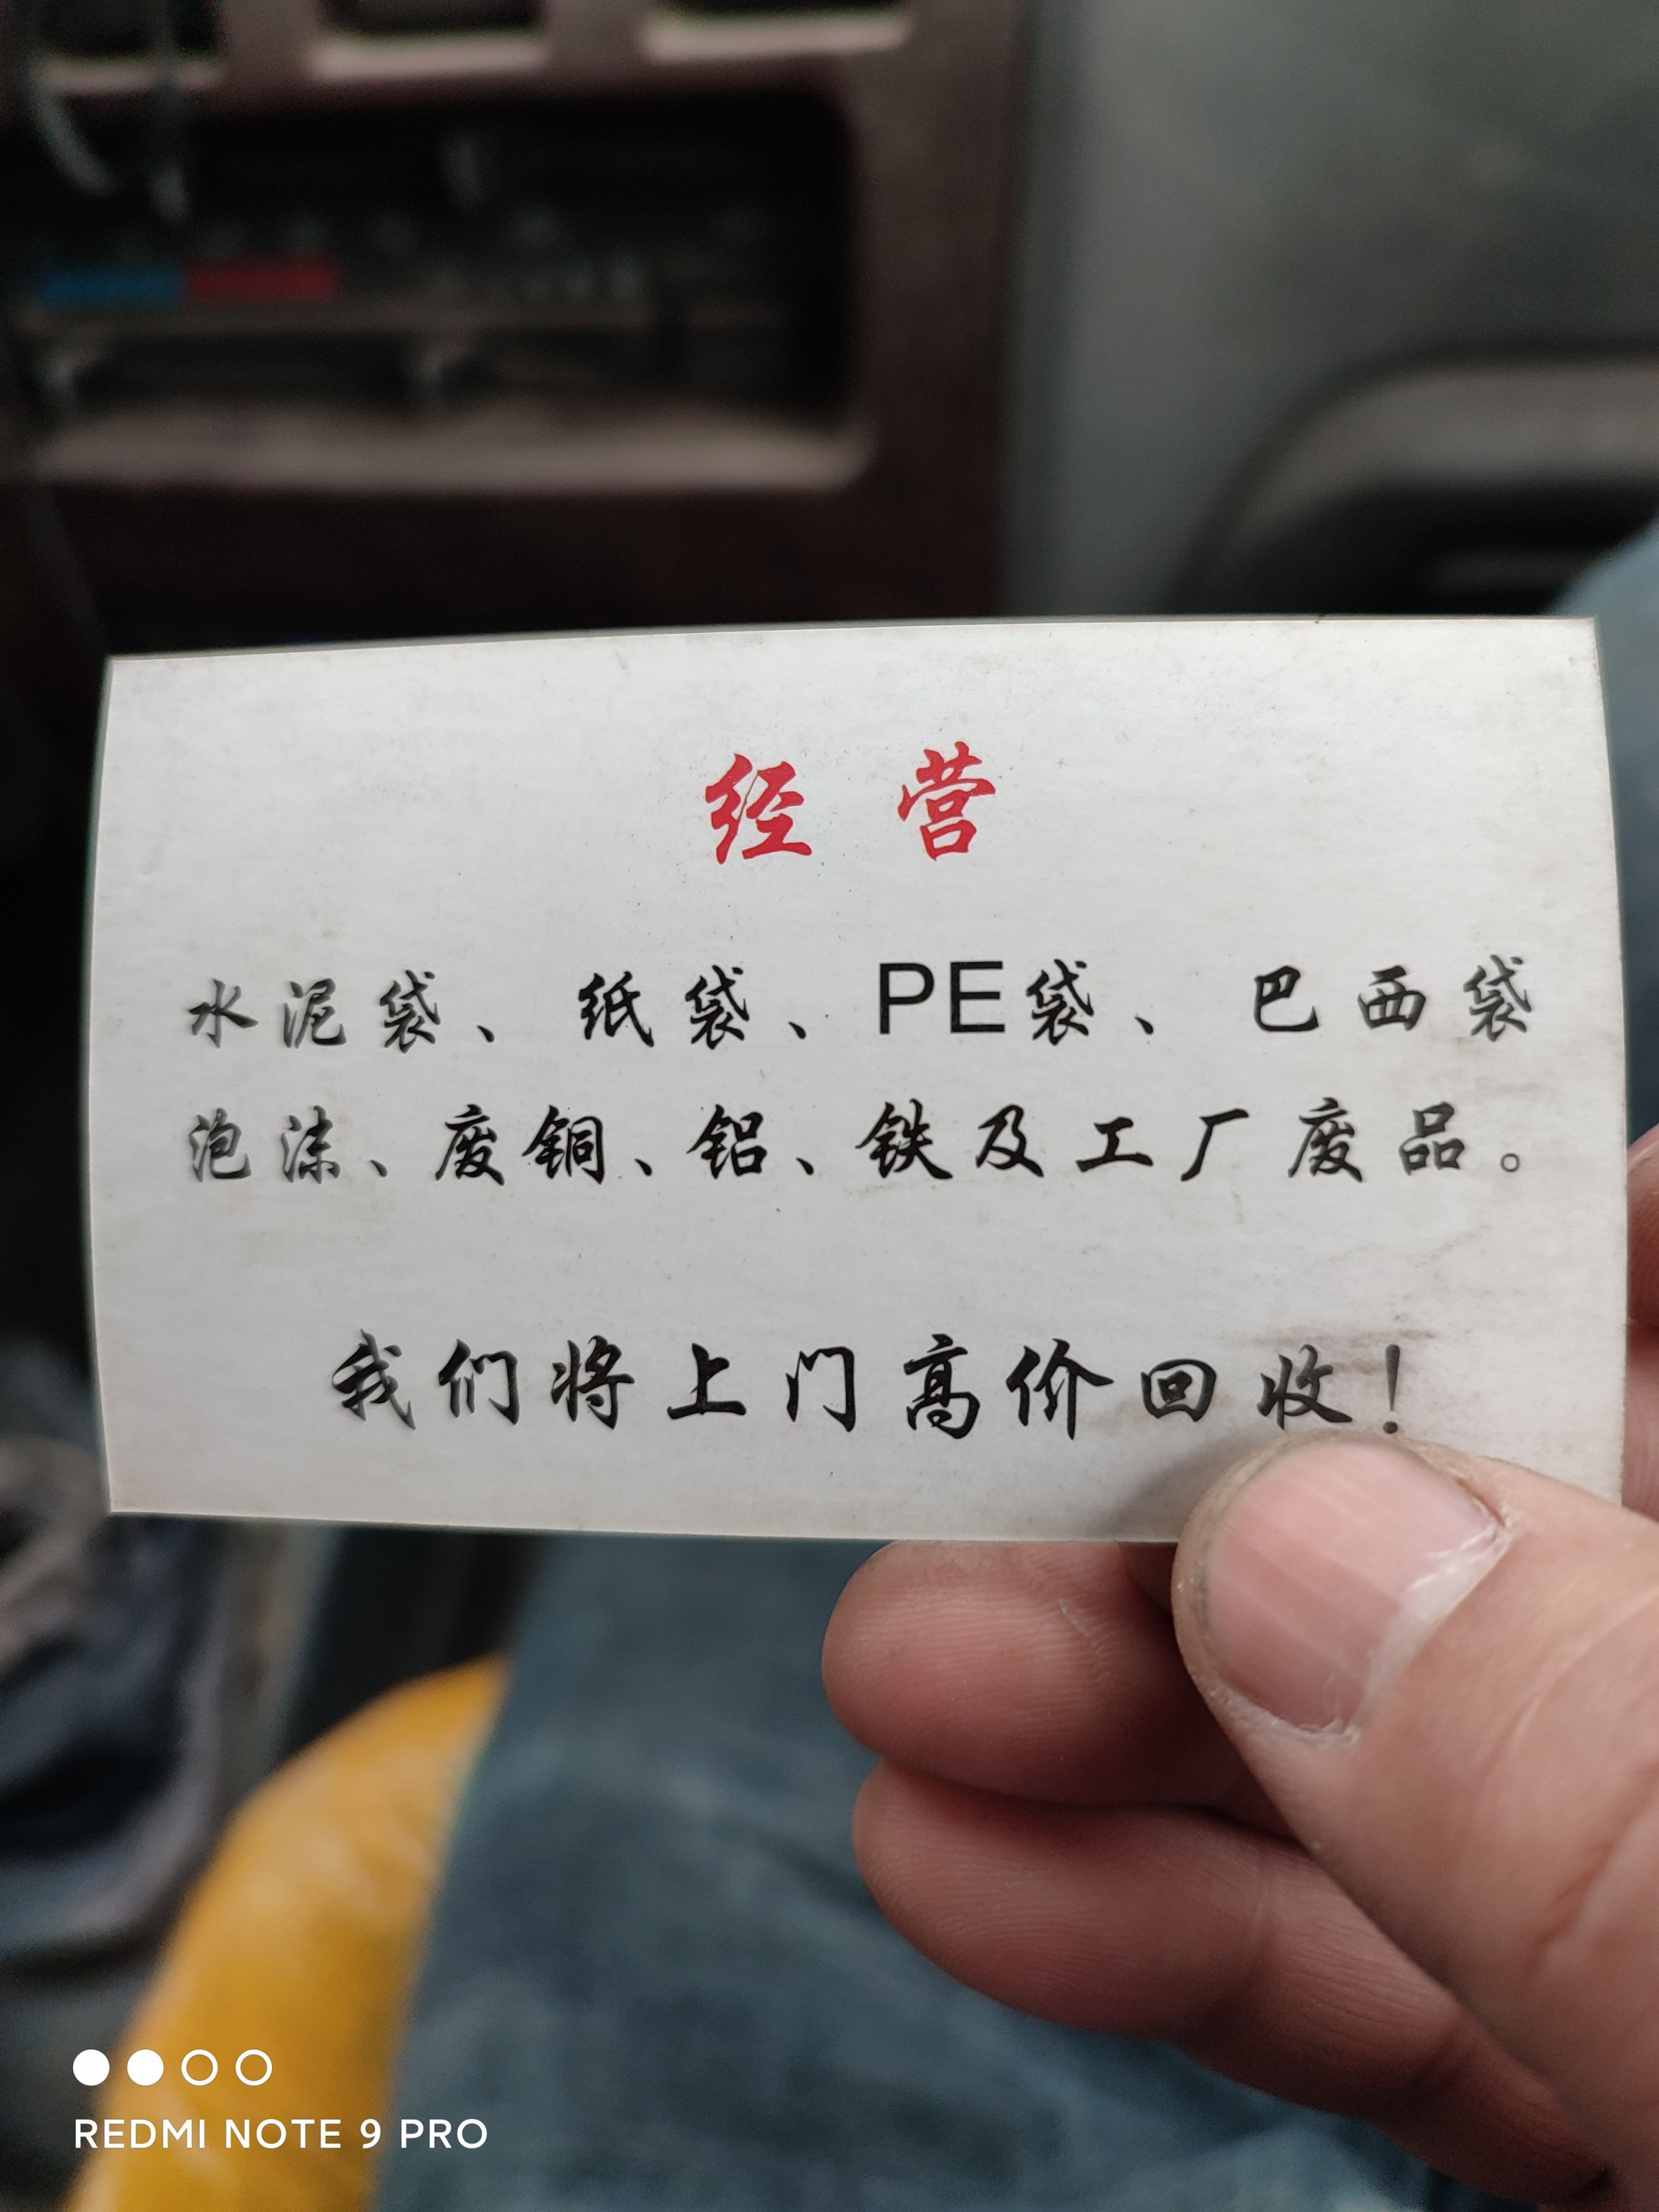 经营
水泥袋、纸袋、PE袋、巴西袋
泡沫、废铜、铝、铁及工厂废品。
我们将上门高价回收！
REDMI NOTE 9 PRO